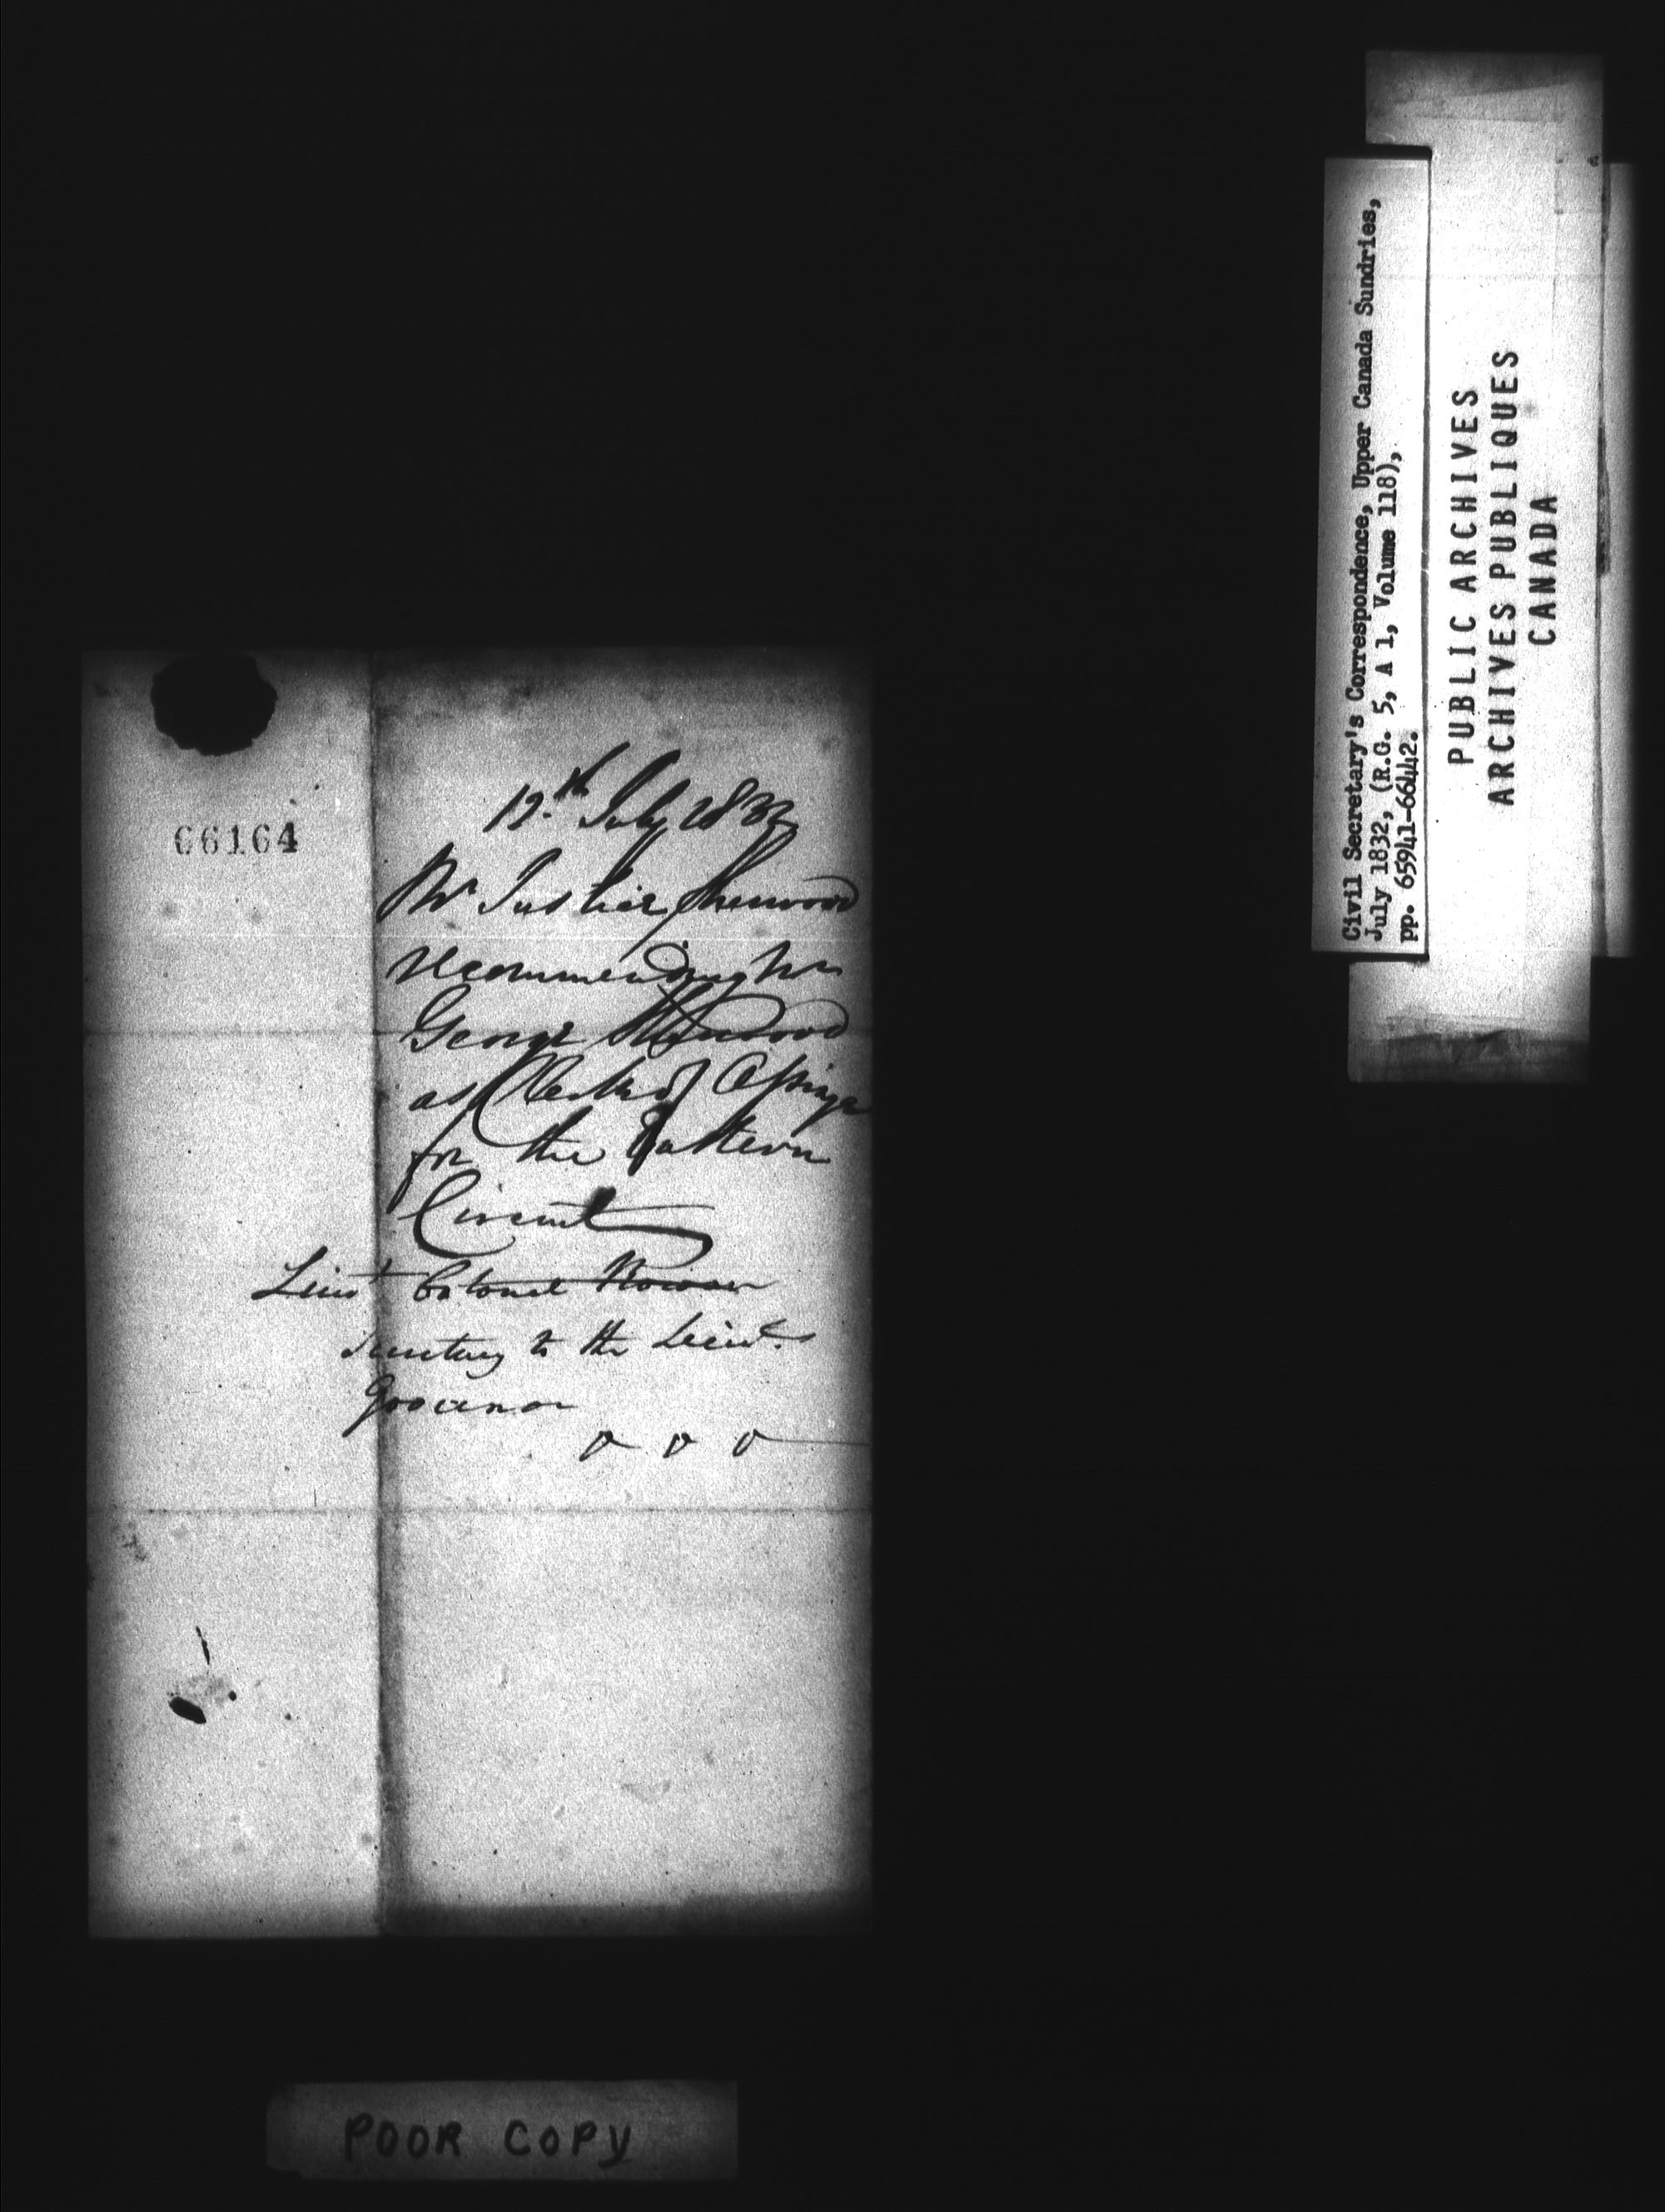 66164
12th July 1832
Mr Justice Sherwood
recommending Mr
George Sherwood
as Clerk of Assize
for the Eastern
Circuit
Lieut Colonel Rowan
Secretary to the Lieut.
Governor
Civil Secretary's Correspondence, Upper Canada Sundries,
July 1832, (R.G. 5, A 1, Volume 118),
pp. 65941-66442.
PUBLIC ARCHIVES
ARCHIVES PUBLIQUES
CANADA
POOR COPY